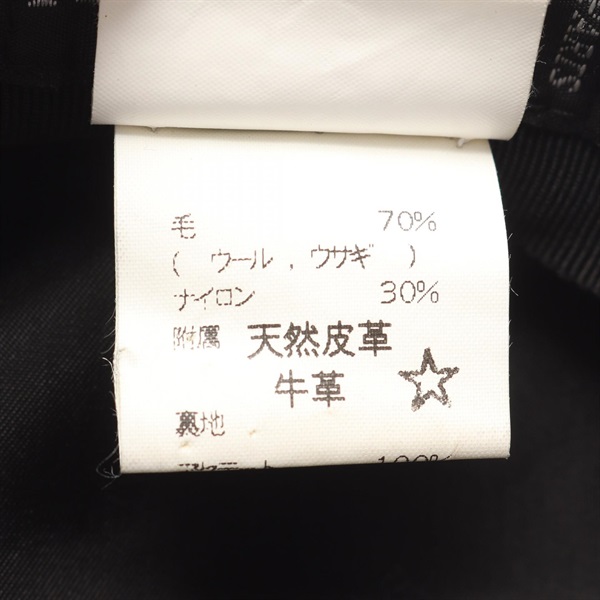 毛 70%
( ウール , ウサギ )
ナイロン 30%
附属 天然皮革
牛革 ☆
裏地
アセテート 100%
PARIS